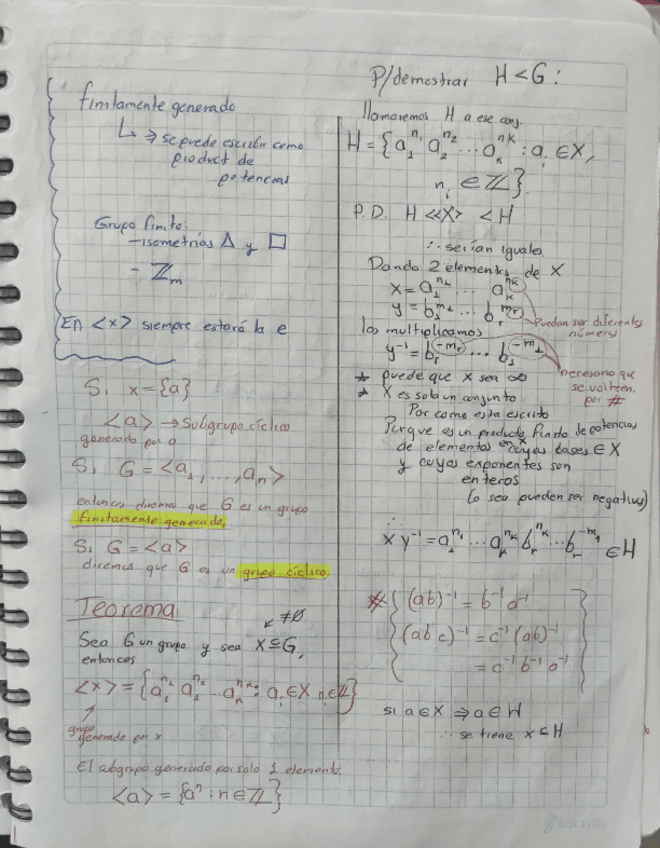 finitamente generado
↳ ⇒ se puede escribir como
product de
potencias
Grupo finito:
- isometrías △ y □
- ℤₘ
En <x> siempre estará la e
Si x={a}
<a> → Subgrupo cíclico
generado por a
Si G = <a₁,...,aₙ>
entonces diremos que G es un grupo
finitamente generado.
Si G = <a>
diremos que G es un grupo cíclico.
Teorema
≠∅
Sea G un grupo y sea X⊆G,
entonces
<x> = {a₁^n₁ a₂^n₂ ... aₙ^nₖ : aᵢ∈X nᵢ∈ℤ}
grupo
generado por x
El subgrupo generado por solo 1 elemento:
<a> = {aⁿ : n∈ℤ}
P/demostrar H<G:
llamaremos H a ese conj.
H = {a₁^n₁ a₂^n₂ ... aₖ^nₖ : aᵢ∈X,
nᵢ ∈ℤ}.
P.D. H <<X> <H
∴ serían iguales
Dando 2 elements de X
x = a₁^n₁ ... aₖ^nₖ
y = b₁^m₁ ... bᵣ^mᵣ
Puedan ser diferentes
números
los multiplicamos
y⁻¹ = bᵣ^-mᵣ ... b₁^-m₁
necesario que
se volteen.
por #
* puede que x sea ∞
* X es solo un conjunto
Por como esta escrito
Porque es un producto finito de potencias
de elementos en X cuyas bases ∈ X
y cuyos exponentes son
enteros
(o sea pueden ser negativos)
∴
xy⁻¹ = a₁^n₁ ... aₖ^nₖ bᵣ^nₖ ... b^-m₁ ∈H
# { (ab)⁻¹ = b⁻¹a⁻¹
(abc)⁻¹ = c⁻¹(ab)⁻¹
= c⁻¹b⁻¹a⁻¹ }
si a∈X ⇒ a∈H
∴ se tiene x⊆H
Norma